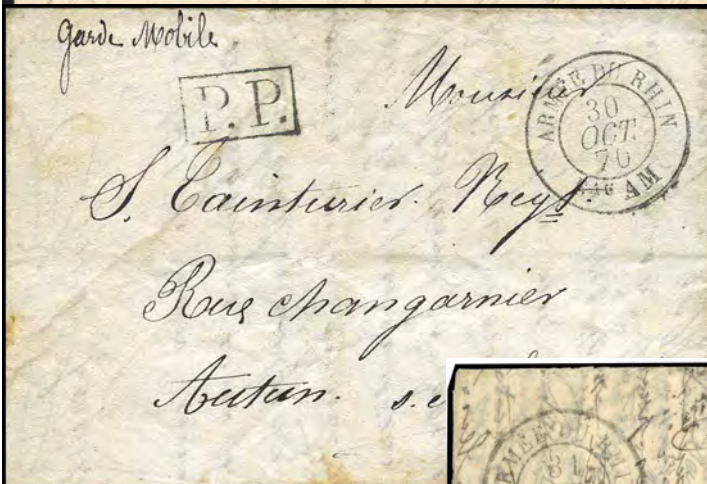 Garde Mobile
P.P.
Monsieur
ARMÉE DU RHIN
30
OCT.
70
AM
S. Tainturier. Reyt.
Rue changarnier
Autun. s.e